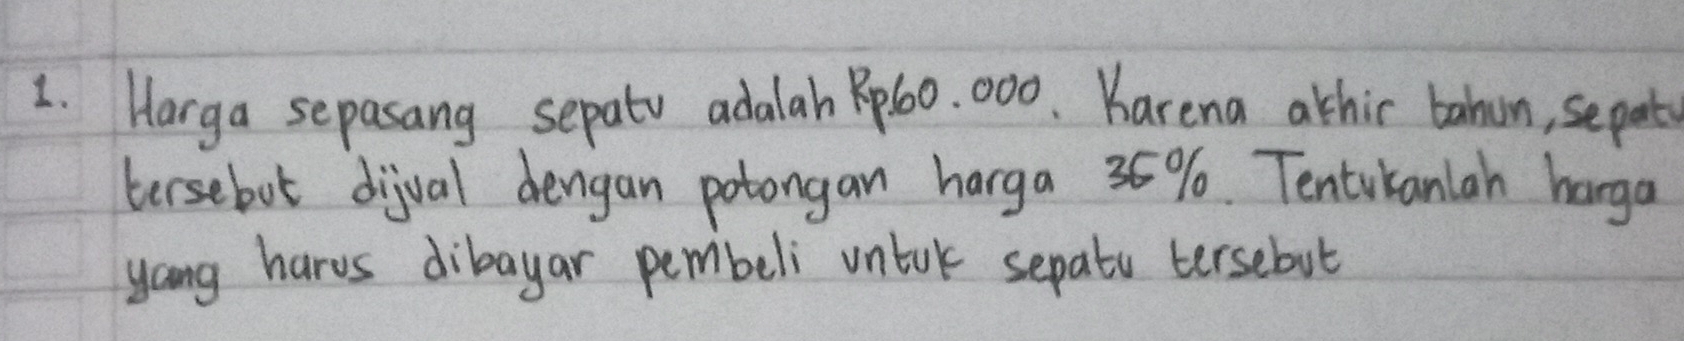 1. Harga sepasang sepatu adalah Rp60.000. Karena akhir tahun, sepatu
tersebut dijual dengan potongan harga 36%. Tentukanlah harga
yang harus dibayar pembeli untuk sepatu tersebut